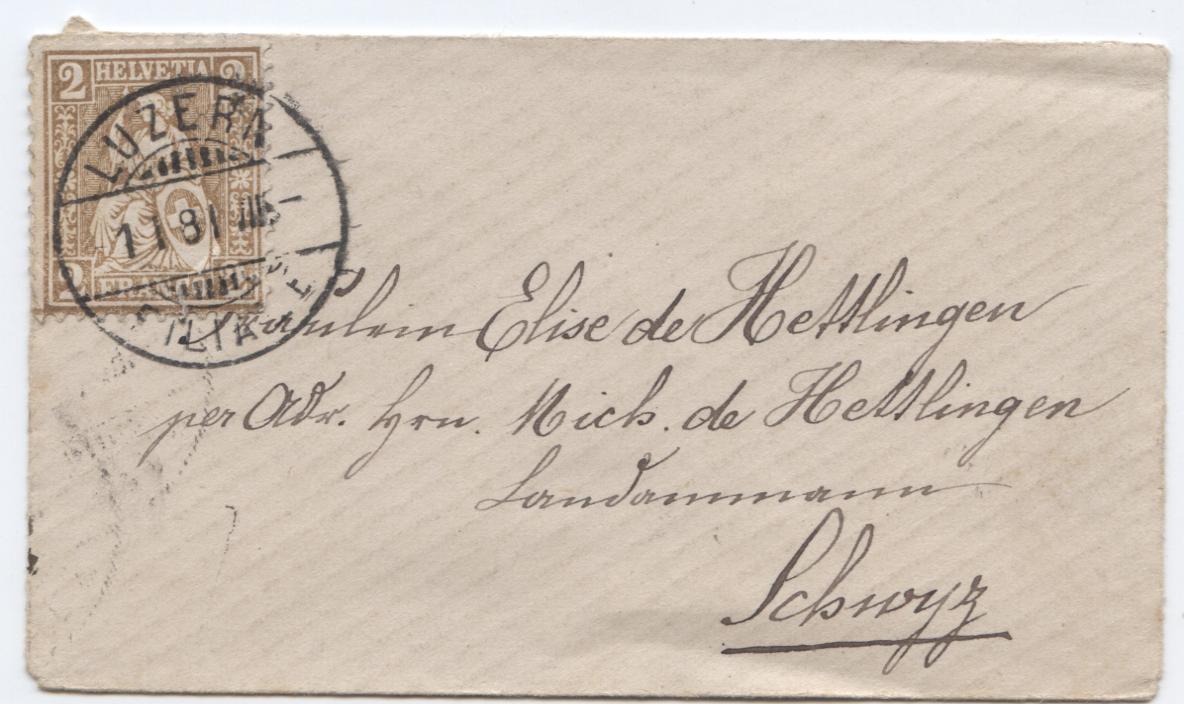 2 HELVETIA 2
LUZERN
1 I 81 III 5 –
FILIALE
2
Fräulein Elise de Hettlingen
per Adr. Hrn. Mich. de Hettlingen
Landammann
Schwyz